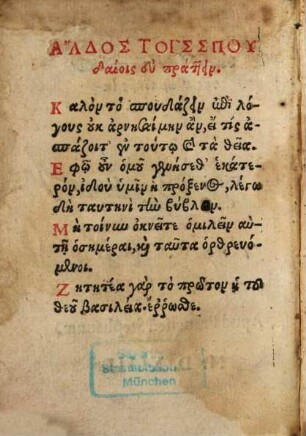 ΑΛΔΟΣ ΤΟΙΣ ΣΠΟΥ
δαίοις εὖ πράττειν.
Καλὸν τὸ σπουδάζειν περὶ λό-
γους οὐκ ἀρνησαίμην ἄν, εἴ τις ἀ-
σπάζοιτ' ἐν τούτῳ καὶ τὰ θεῖα.
Ἐφ' ᾧ οὖν ὁμοῦ γενήσεσθ' ἑκάτε-
ρον, ἰδοὺ ὑμῖν ἡ πρόξενος, λέγω
δὴ ταυτηνὶ τὴν βύβλον.
Μὴ τοίνυν ὀκνεῖτε ὁμιλεῖν αὐ-
τῇ ὁσημέραι, καὶ ταῦτα ὀρθρευό-
μενοι.
Ζητητέα γὰρ τὸ πρῶτον ἡ τοῦ
θεοῦ βασιλεία. ἔρρωσθε.
München